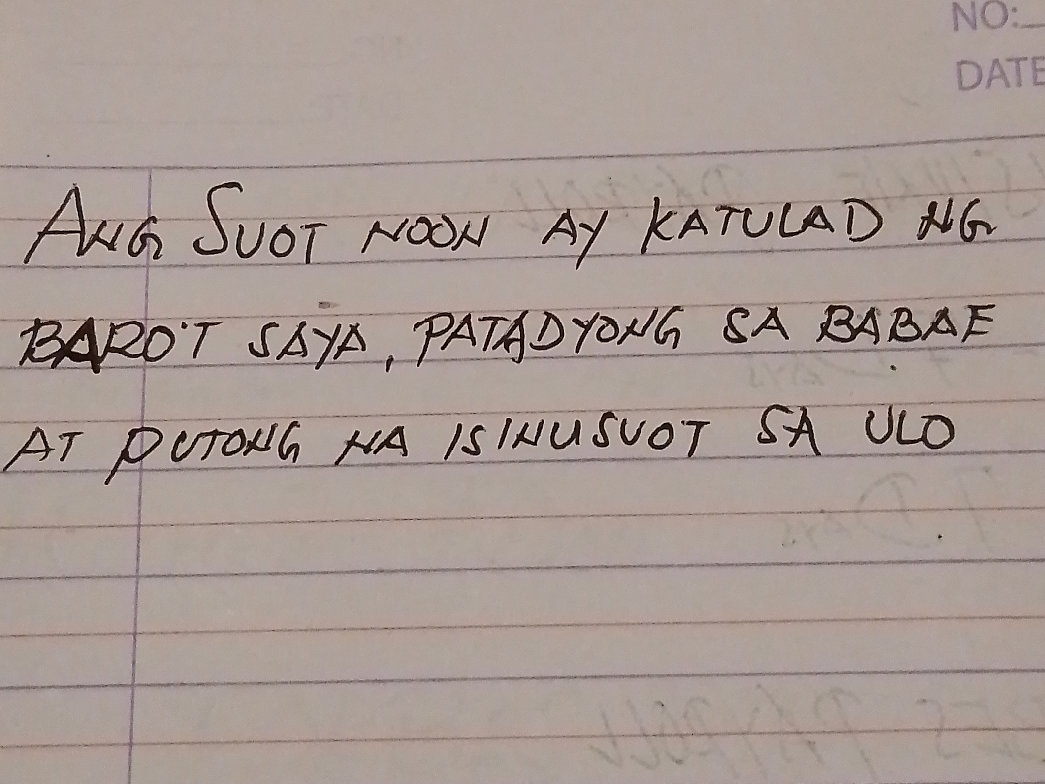 NO:
DATE
ANG SUOT NOON AY KATULAD NG
BARO'T SAYA, PATADYONG SA BABAE
AT PUTONG NA ISINUSUOT SA ULO